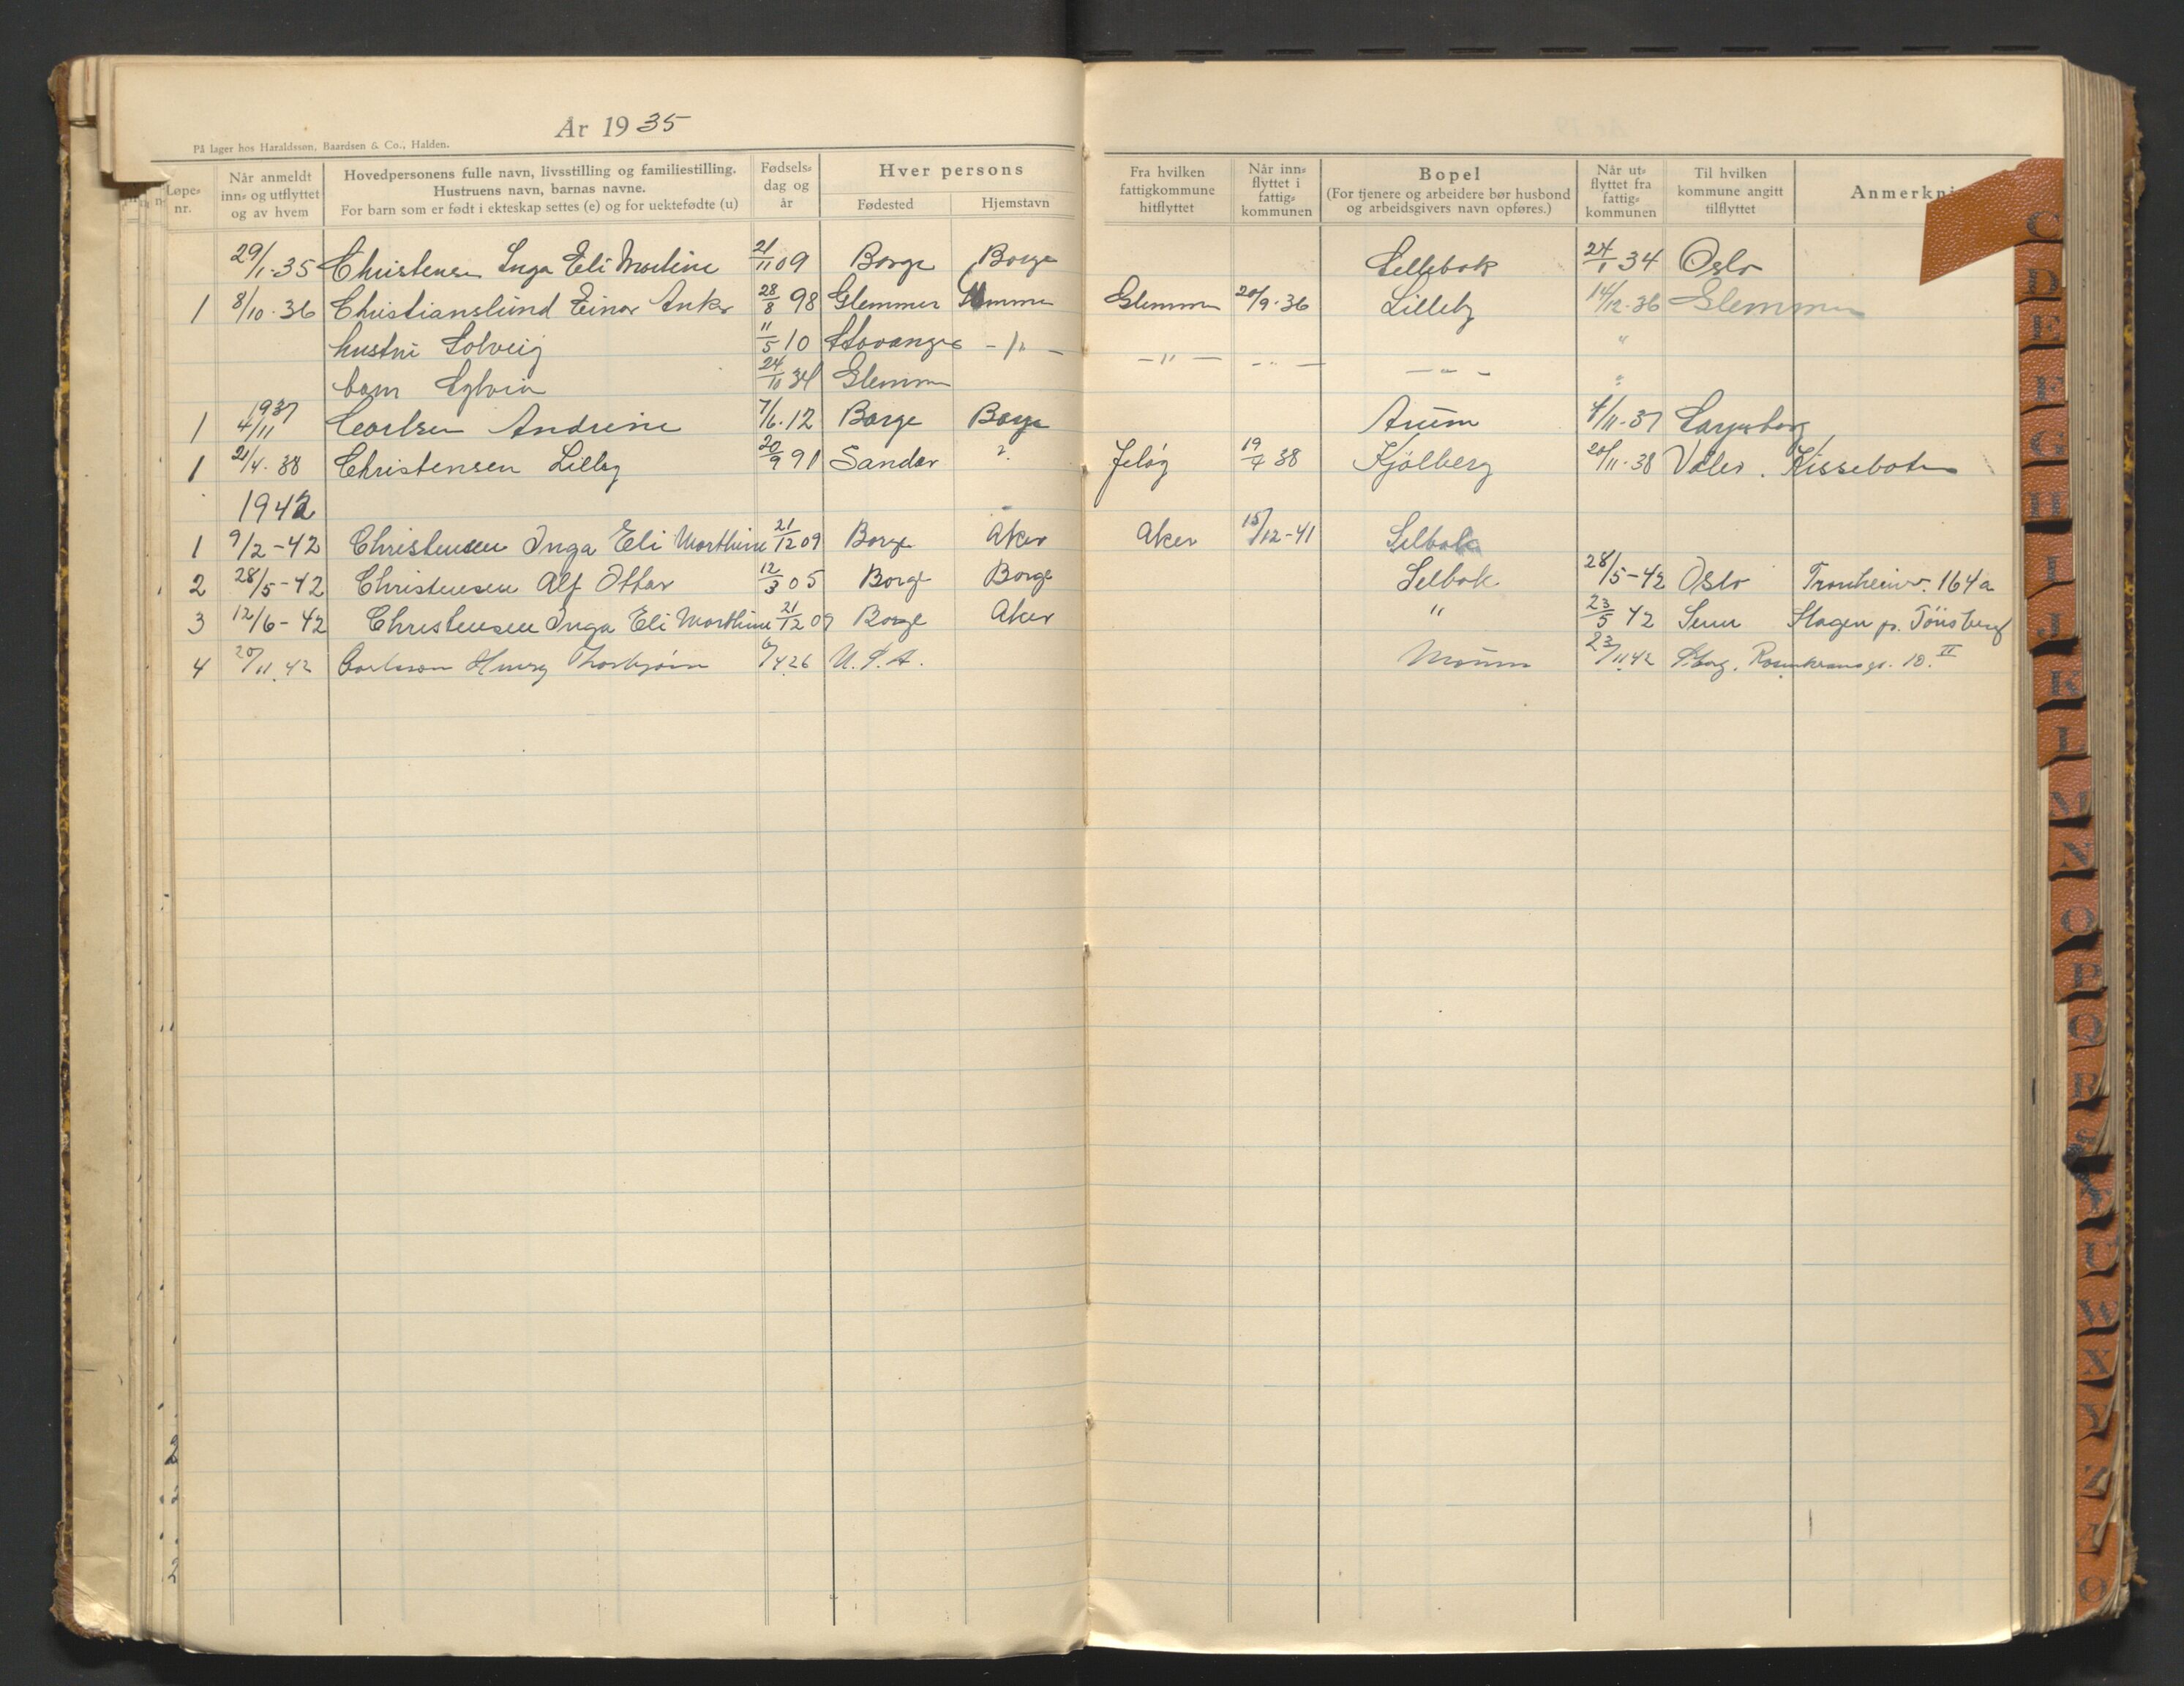 År 1935
På lager hos Haraldssøn, Baardsen & Co., Halden.
Løpe-nr. Når anmeldt inn- og utflyttet og av hvem Hovedpersonens fulle navn, livsstilling og familiestilling. Hustruens navn, barnas navne. For barn som er født i ekteskap settes (e) og for uektefødte (u) Fødsels-dag og år Hver persons Fødested Hjemstavn Fra hvilken fattigkommune hitflyttet Når inn-flyttet i fattig-kommunen Bopel (For tjenere og arbeidere bør husbond og arbeidsgivers navn opføres.) Når ut-flyttet fra fattig-kommunen Til hvilken kommune angitt tilflyttet Anmerkni
29/1-35 Christensen Inga Eli Martine 21/11 09 Borge Borge Sellebak 24/1 34 Oslo
1 8/10-36 Christianslund Einar Anker 28/8 98 Glemmen Glemmen 20/9-36 Lilleby 14/12-36 Glemmen
hustru Solveig 11/5 10 Stavanger -"- -"- -"- "
barn Sylvia 24/11 34 Glemmen
1937
1 4/11 Carlsen Andrine 7/6-12 Borge Borge Årum 4/11-37 Sarpsborg
1 21/4-38 Christensen Lilly 20/9 91 Sandar ? Jeløy 19/4 38 Kjølberg 20/11-38 Våler. Kissebotn
1942
1 9/2-42 Christensen Inga Eli Marthine 21/12 09 Borge Aker Aker 15/12-41 Selbak
2 28/5-42 Christensen Alf Ottar 12/3 05 Borge Borge Selbak 28/5-42 Oslo Tronheimv. 164a
3 12/6-42 Christensen Inga Eli Marthine 21/12 09 Borge Aker " 23/5 42 Sem Slagen pr. Tönsberg
4 20/11.42 Carlsson Henry Thorbjørn 6/4.26 U.S.A. Moum 23/11 42 S.borg, Rosenkransgt. 10. II